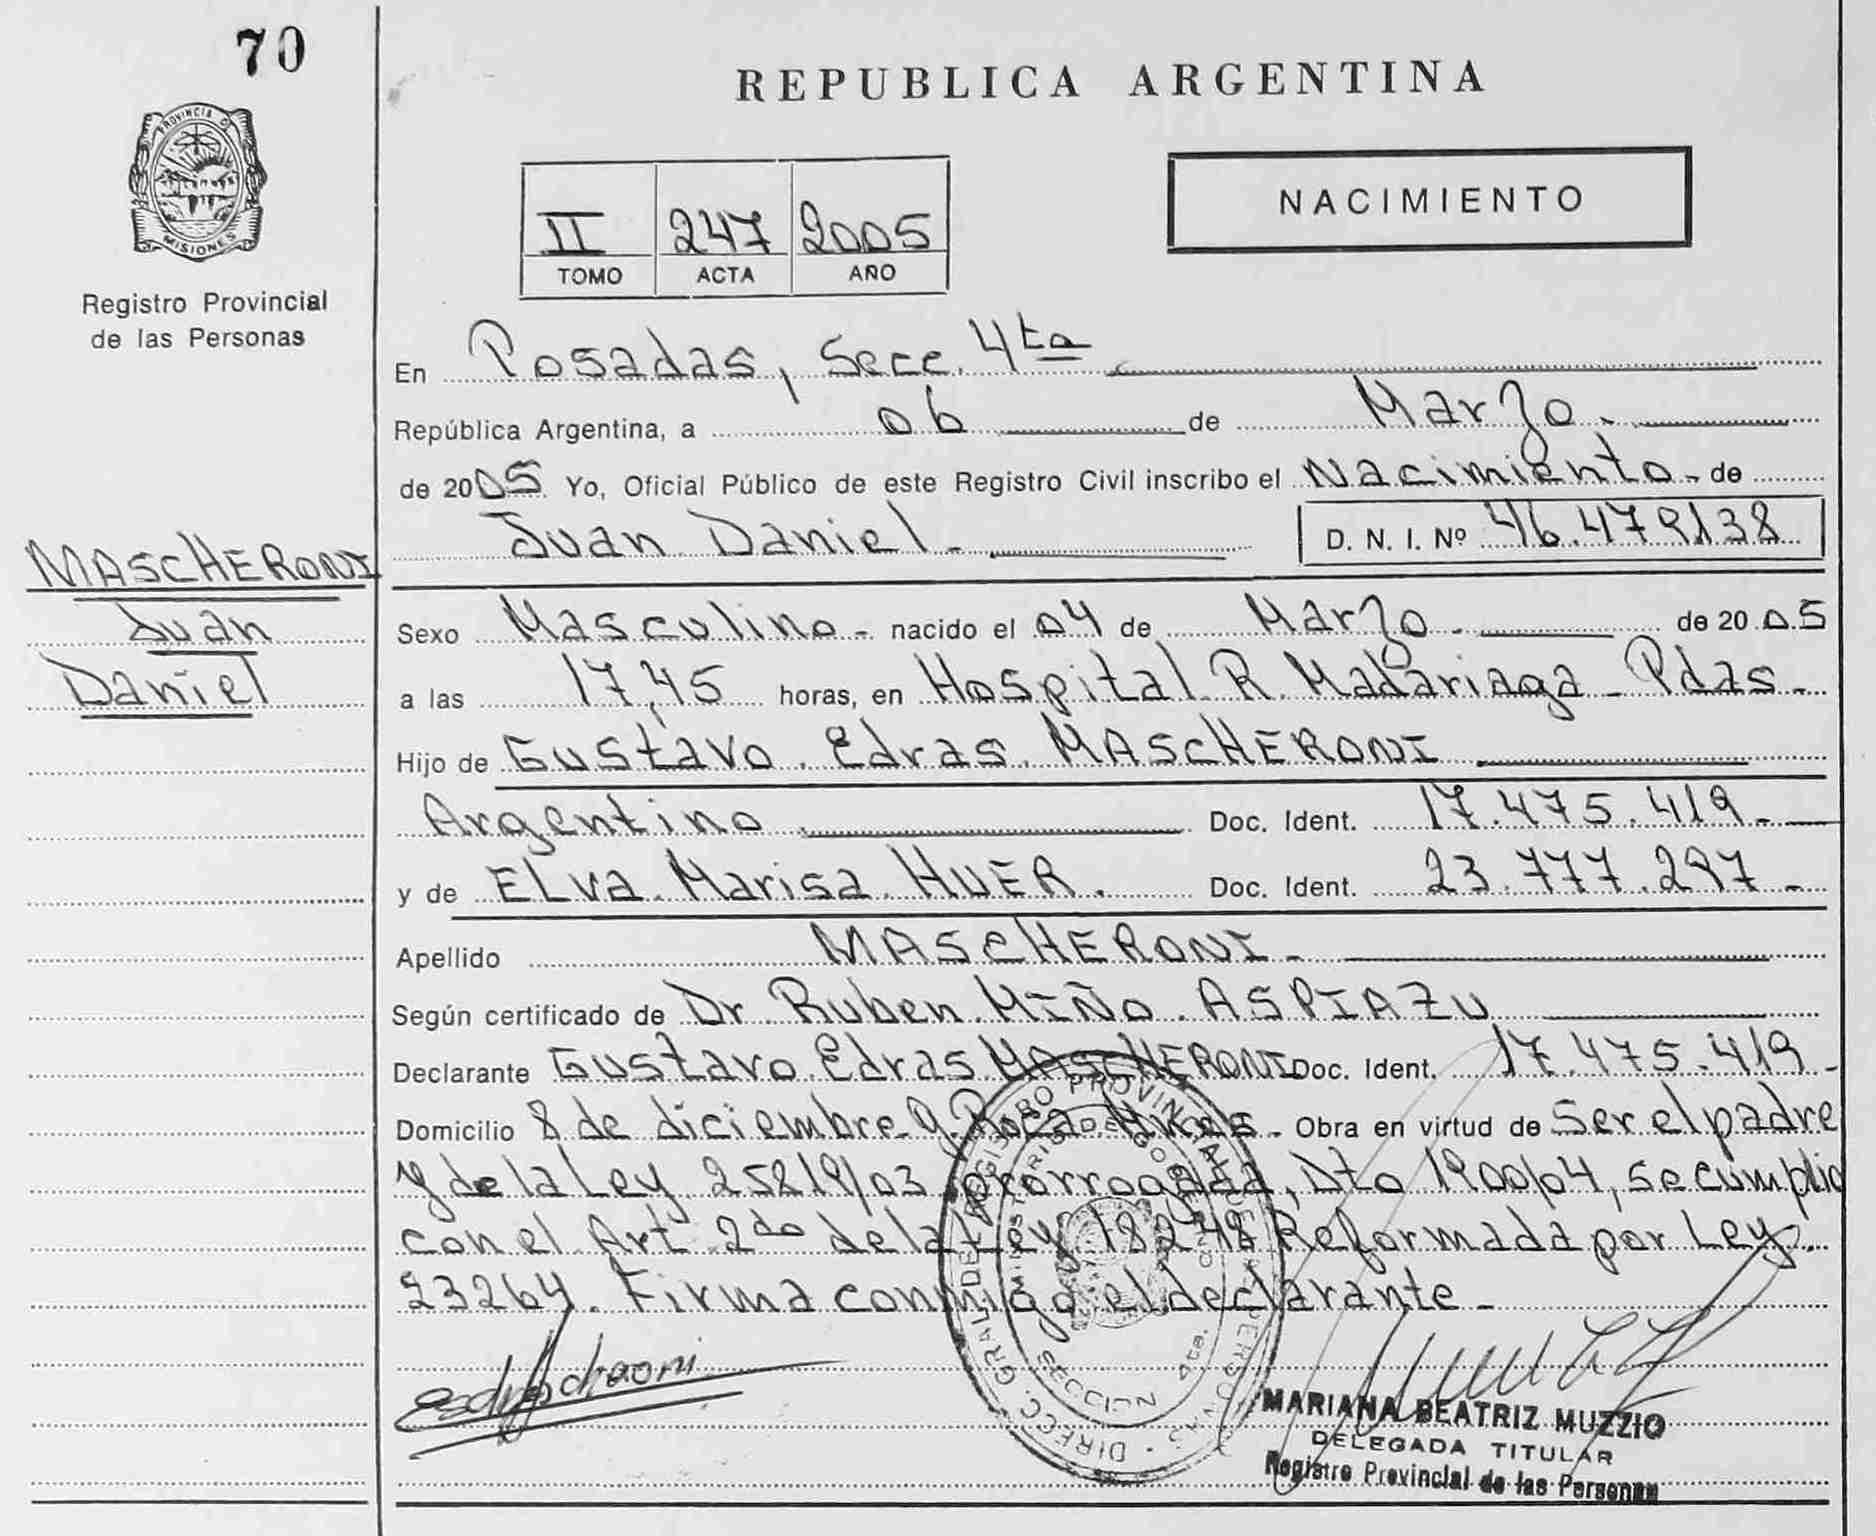 70
REPUBLICA ARGENTINA
PROVINCIA DE
MISIONES
Registro Provincial
de las Personas
NACIMIENTO
II 247 2005
TOMO ACTA AÑO
En Posadas, Secc. 4ta
República Argentina, a 06 de Marzo.
de 2005 Yo, Oficial Público de este Registro Civil inscribo el Nacimiento - de
Juan Daniel - D. N. I. Nº 46.479138
MASCHERONI
Juan
Daniel
Sexo Masculino - nacido el 04 de Marzo. de 2005
a las 17,45 horas, en Hospital R. Madariaga - Pdas -
Hijo de Gustavo Edras MASCHERONI
Argentino. Doc. Ident. 17.475.419 -
y de ELva Marisa HUER. Doc. Ident. 23.777.297 -
Apellido MASCHERONI -
Según certificado de Dr Ruben MIÑO ASPIAZU
Declarante Gustavo Edras MASCHERONI Doc. Ident. 17.475.419 -
Domicilio 8 de diciembre - Obra en virtud de ser el padre
y de la Ley 25819/03 prorrogada, Dto 1900/04, se cumplio
con el Art 2do de la Ley 18248 Reformada por Ley
23264. Firma conmigo el declarante -
DIRECC. GRAL. DEL REGISTRO PROVINCIAL DE LAS PERSONAS
MINISTERIO DE GOBIERNO
SECCION 4ta.
MARIANA BEATRIZ MUZZIO
DELEGADA TITULAR
Registro Provincial de las Personas